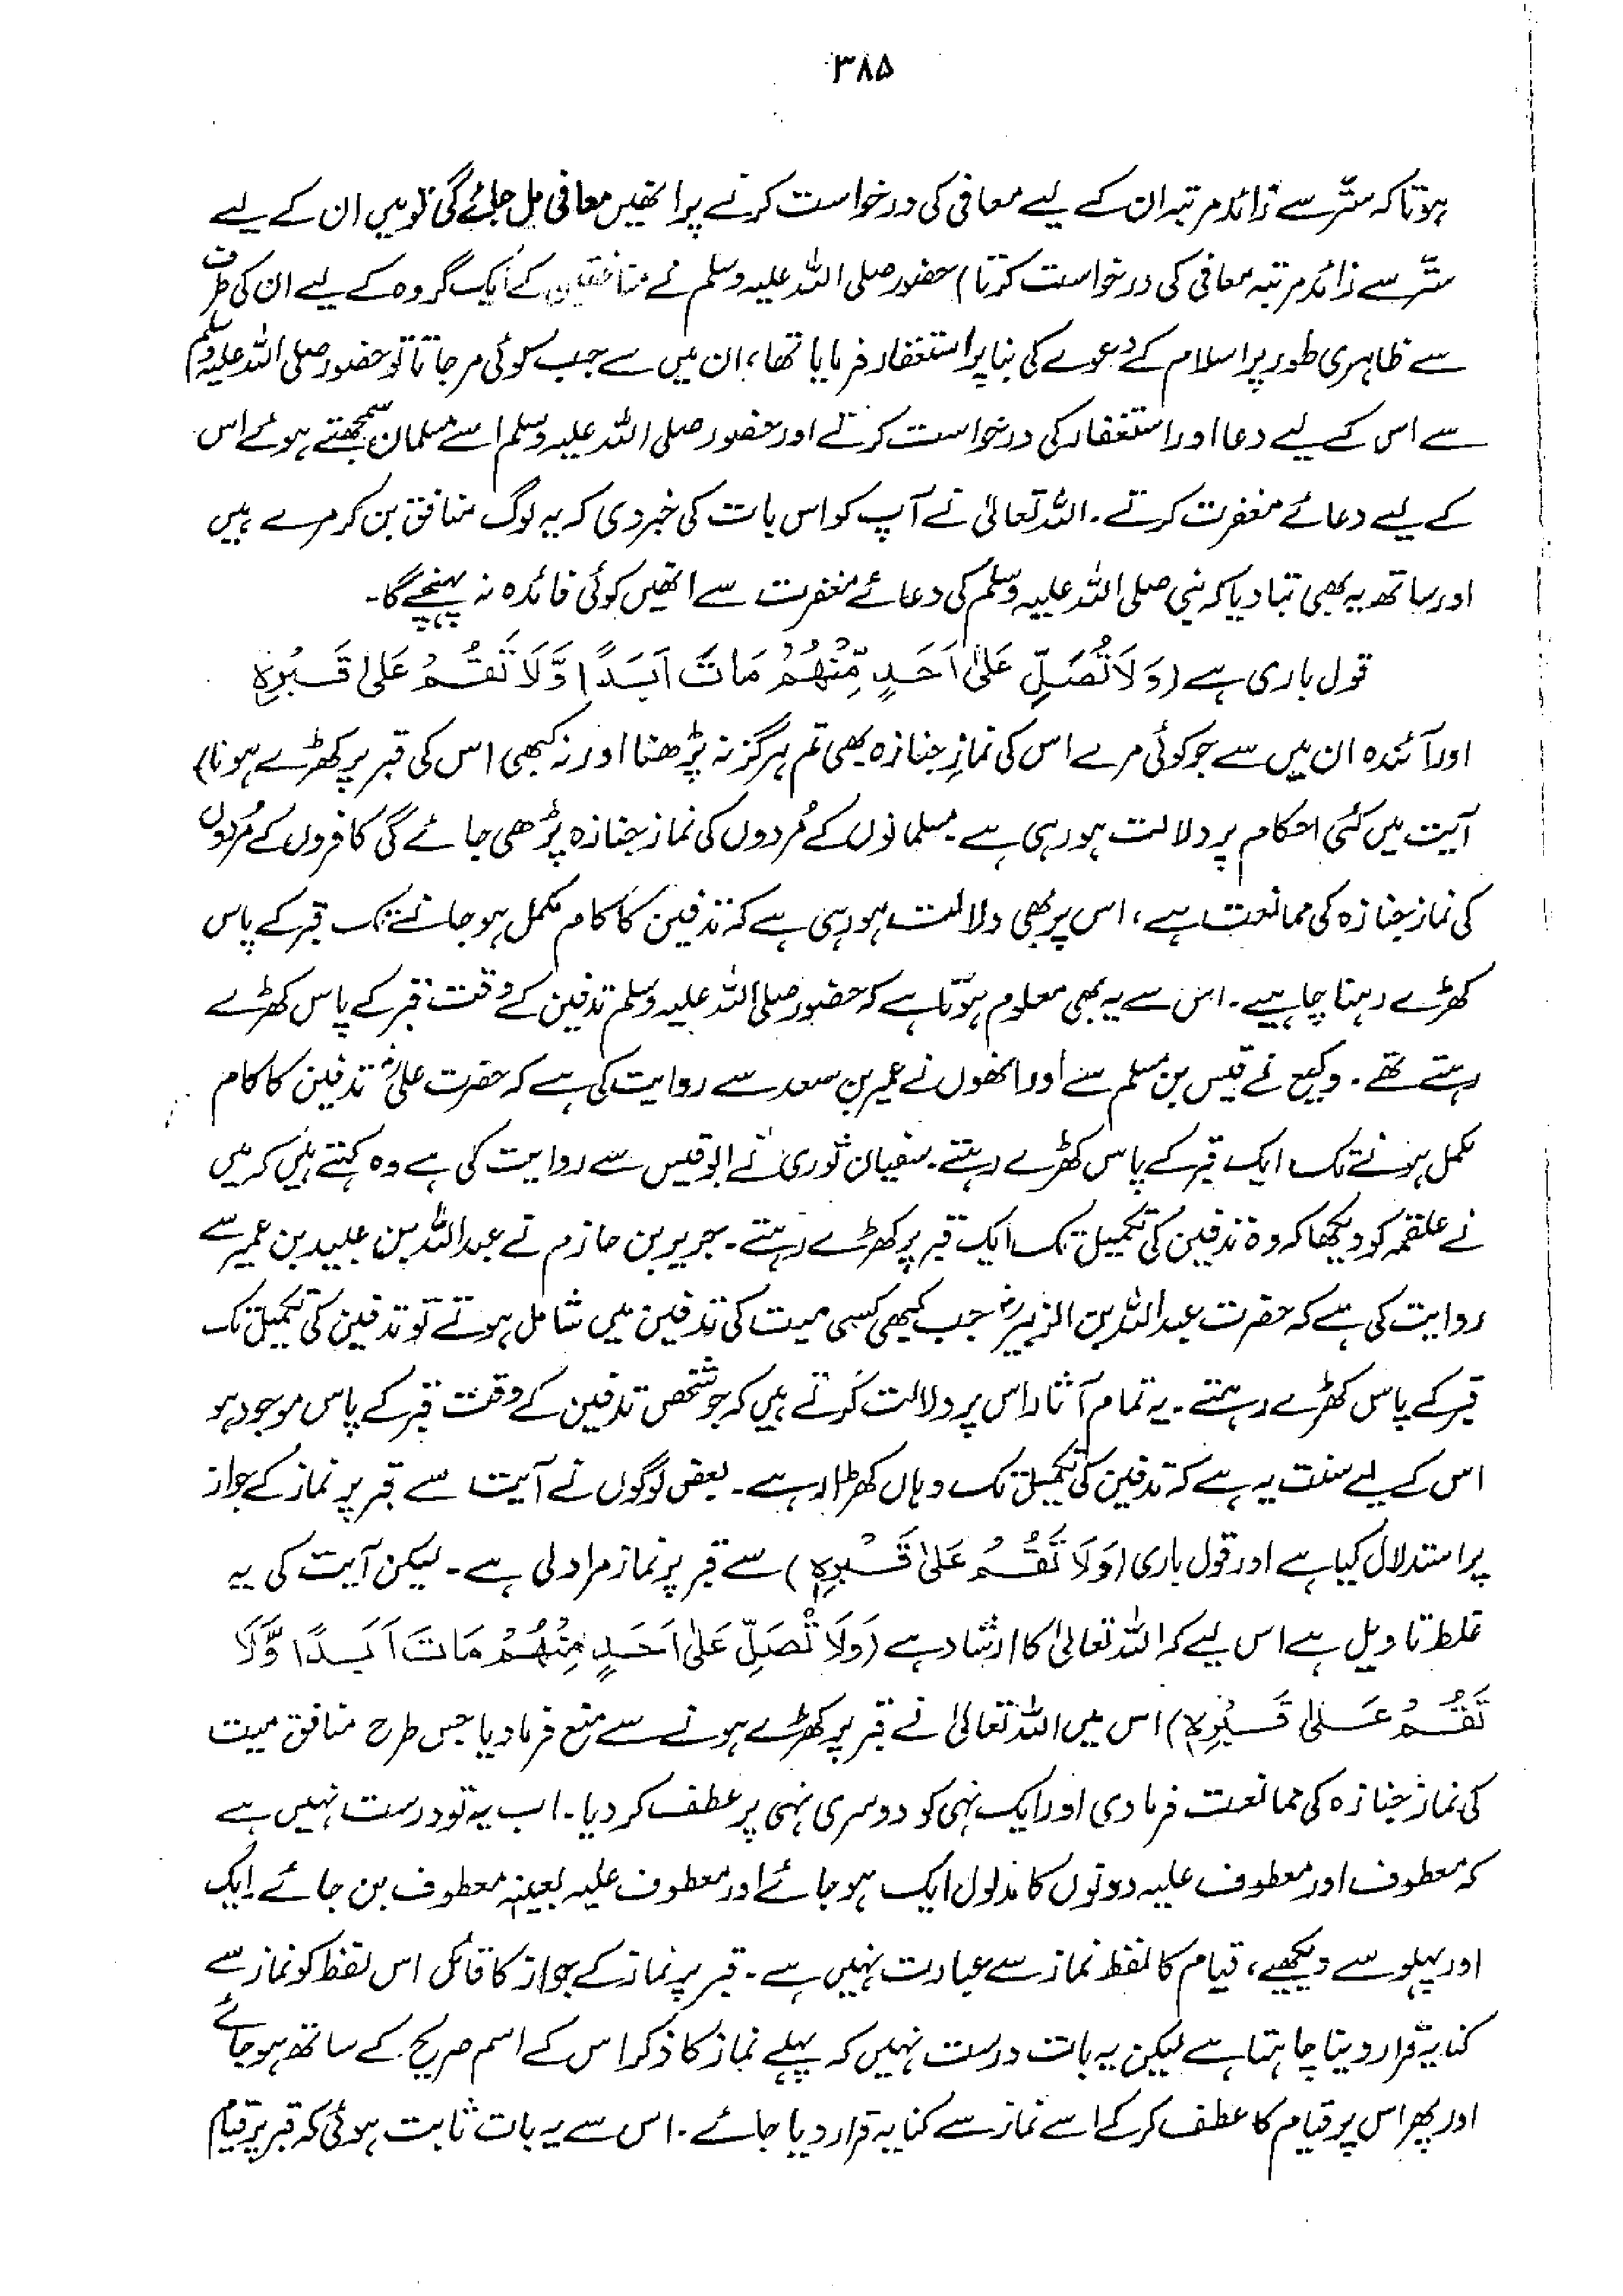 ۳۸۵
ہوتا کہ ستّر سے زائد مرتبہ ان کے لیے معافی کی درخواست کرنے پر انھیں معافی مل جائے گی تو میں ان کے لیے
ستّر سے زائد مرتبہ معافی کی درخواست کرتا) حضور صلی اللہ علیہ وسلم نے منافقین کے ایک گروہ کے لیے ان کی طرف
سے ظاہری طور پر اسلام کے دعوے کی بنا پر استغفار فرمایا تھا، ان میں سے جب کوئی مر جاتا تو حضور صلی اللہ علیہ وسلم
سے اس کے لیے دعا اور استغفار کی درخواست کرتے اور حضور صلی اللہ علیہ وسلم اسے مسلمان سمجھتے ہوئے اس
کے لیے دعائے مغفرت کرتے۔ اللہ تعالیٰ نے آپ کو اس بات کی خبر دی کہ یہ لوگ منافق بن کر مرے ہیں
اور ساتھ یہ بھی بتا دیا کہ نبی صلی اللہ علیہ وسلم کی دعائے مغفرت سے انھیں کوئی فائدہ نہ پہنچے گا۔
قول باری ہے (وَلَا تُصَلِّ عَلٰی اَحَدٍ مِّنْهُمْ مَاتَ اَبَدًا وَّلَا تَقُمْ عَلٰی قَبْرِہٖ
اور آئندہ ان میں سے جو کوئی مرے اس کی نمازِ جنازہ بھی تم ہرگز نہ پڑھنا اور نہ کبھی اس کی قبر پر کھڑے ہونا)
آیت میں کئی احکام پر دلالت ہو رہی ہے۔ مسلمانوں کے مُردوں کی نماز جنازہ پڑھی جائے گی کافروں کے مُردوں
کی نماز جنازہ کی ممانعت ہے، اس پر بھی دلالت ہو رہی ہے کہ تدفین کا کام مکمل ہو جانے تک قبر کے پاس
کھڑے رہنا چاہیے۔ اس سے یہ بھی معلوم ہوتا ہے کہ حضور صلی اللہ علیہ وسلم تدفین کے وقت قبر کے پاس کھڑے
رہتے تھے۔ وکیع نے قیس بن مسلم سے اور انھوں نے عمیر بن سعد سے روایت کی ہے کہ حضرت علیؓ تدفین کا کام
مکمل ہونے تک ایک قبر کے پاس کھڑے رہتے۔ سفیان ثوری نے ابوقیس سے روایت کی ہے وہ کہتے ہیں کہ میں
نے علقمہ کو دیکھا کہ وہ تدفین کی تکمیل تک ایک قبر پر کھڑے رہتے۔ جریر بن حازم نے عبداللہ بن عبید بن عمیر سے
روایت کی ہے کہ حضرت عبداللہ بن الزبیرؓ جب کبھی کسی میت کی تدفین میں شامل ہوتے تو تدفین کی تکمیل تک
قبر کے پاس کھڑے رہتے۔ یہ تمام آثار اس پر دلالت کرتے ہیں کہ جو شخص تدفین کے وقت قبر کے پاس موجود ہو
اس کے لیے سنت یہ ہے کہ تدفین کی تکمیل تک وہاں کھڑا رہے۔ بعض لوگوں نے آیت سے قبر پر نماز کے جواز
پر استدلال کیا ہے اور قول باری (وَلَا تَقُمْ عَلٰی قَبْرِہٖ) سے قبر پر نماز مراد لی ہے۔ لیکن آیت کی یہ
غلط تاویل ہے اس لیے کہ اللہ تعالیٰ کا ارشاد ہے (وَلَا تُصَلِّ عَلٰی اَحَدٍ مِنْهُمْ مَاتَ اَبَدًا وَّلَا
تَقُمْ عَلٰی قَبْرِہٖ) اس میں اللہ تعالیٰ نے قبر پر کھڑے ہونے سے منع فرما دیا جس طرح منافق میت
کی نماز جنازہ کی ممانعت فرما دی اور ایک نہی کو دوسری نہی پر عطف کر دیا۔ اب یہ تو درست نہیں ہے
کہ معطوف اور معطوف علیہ دونوں کا مدلول ایک ہو جائے اور معطوف علیہ بعینہٖ معطوف بن جائے۔ ایک
اور پہلو سے دیکھیے، قیام کا لفظ نماز سے عبارت نہیں ہے۔ قبر پر نماز کے جواز کا قائل اس لفظ کو نماز سے
کنایہ قرار دینا چاہتا ہے لیکن یہ بات درست نہیں کہ پہلے نماز کا ذکر اس کے اسم صریح کے ساتھ ہو جائے
اور پھر اس پر قیام کا عطف کر کے اسے نماز سے کنایہ قرار دیا جائے۔ اس سے یہ بات ثابت ہوئی کہ قبر پر قیام